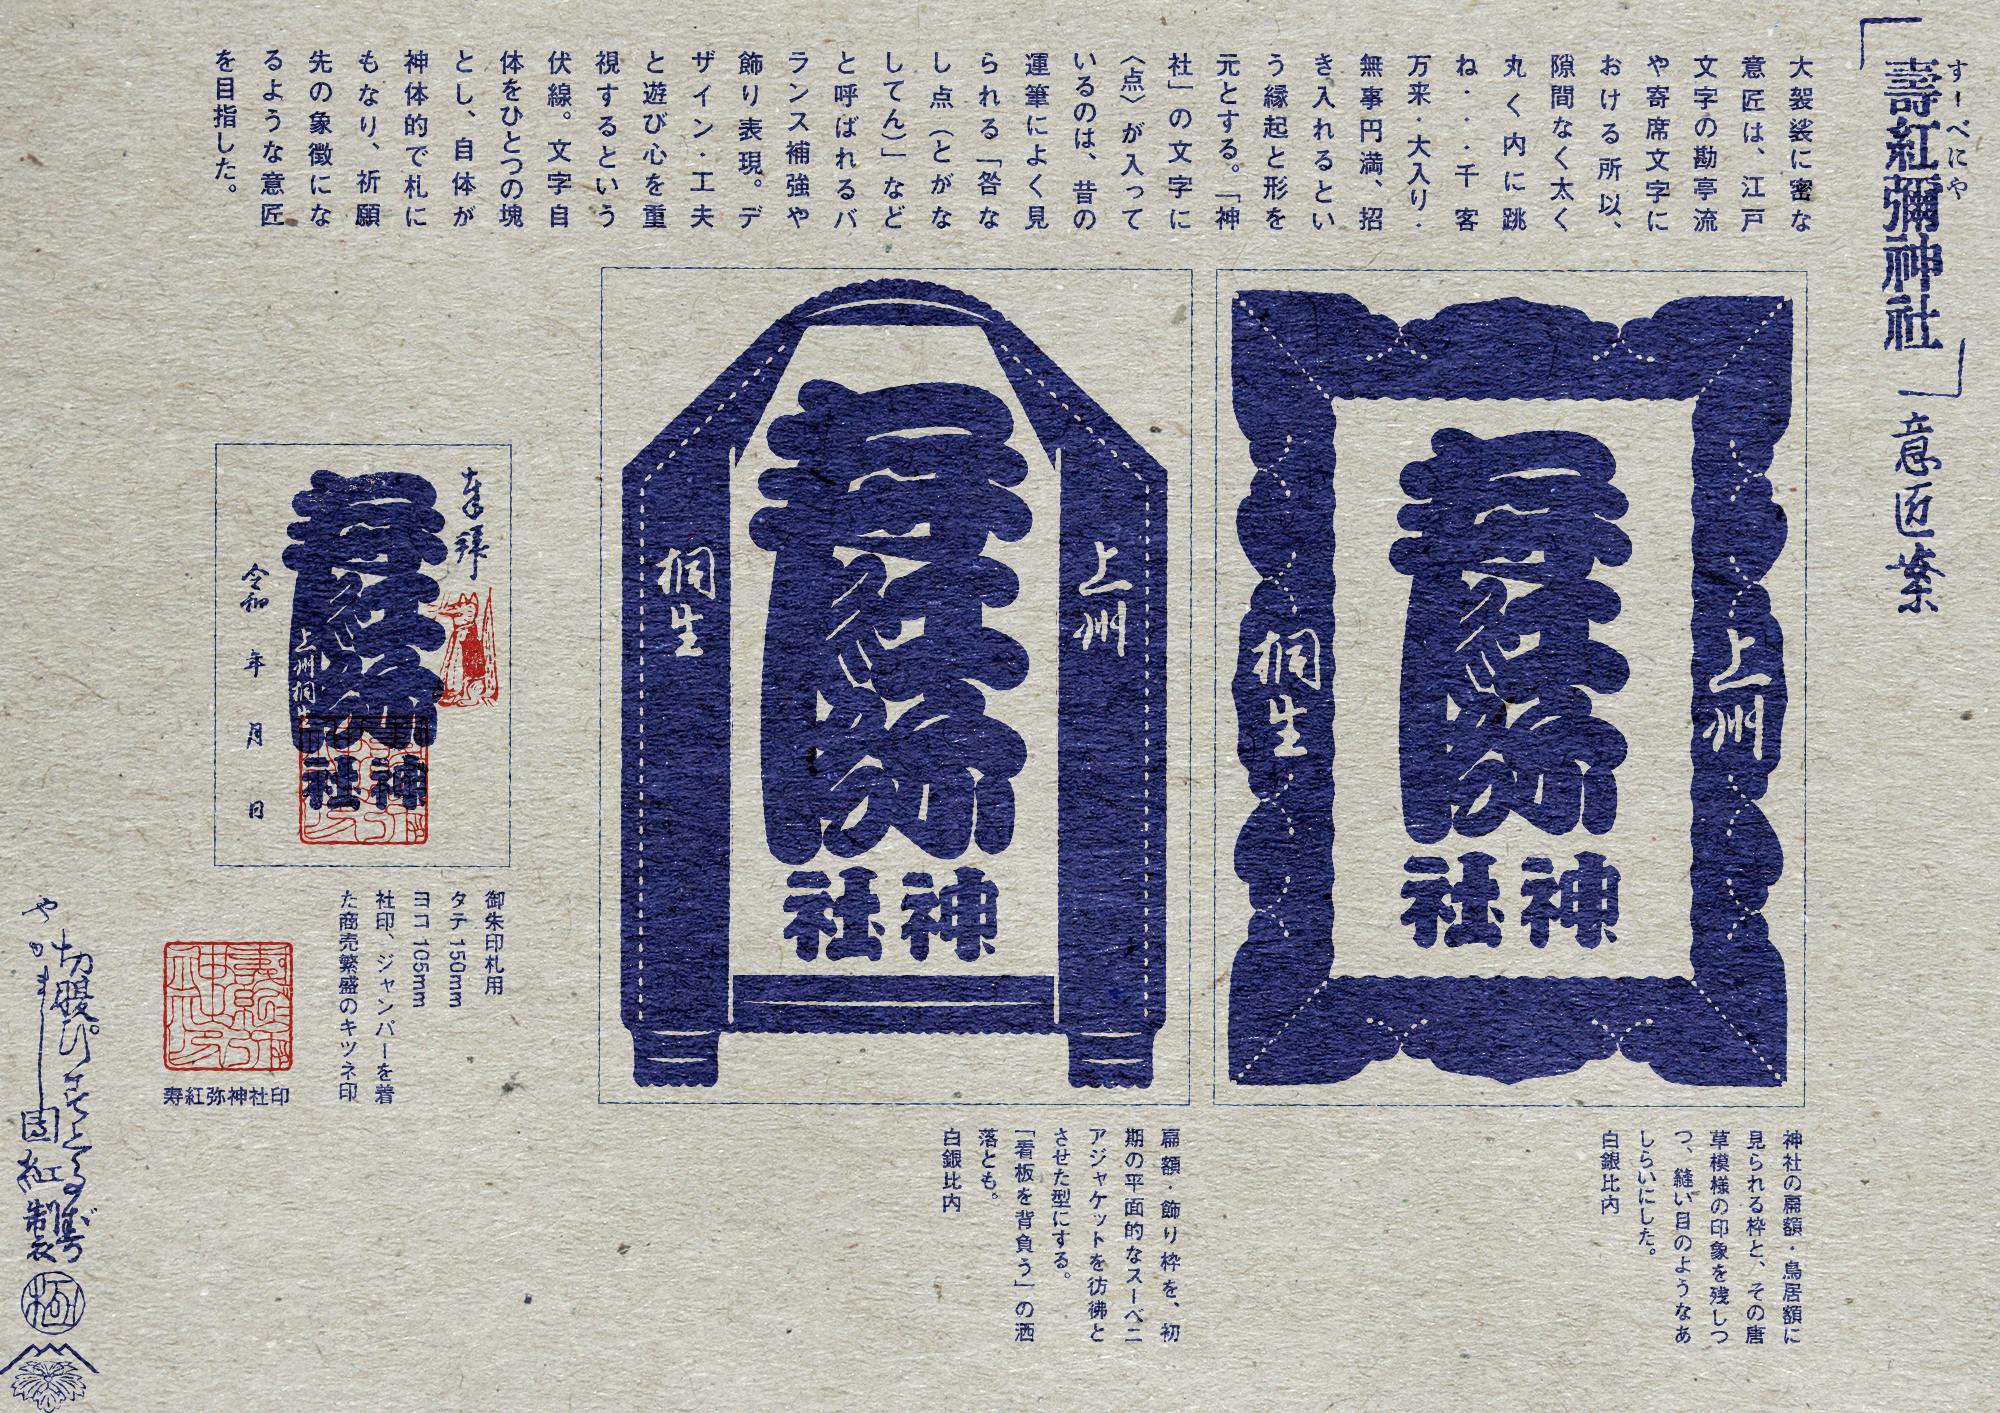 「壽紅彌神社」意匠案
すーべにや
大袈裟に密な
意匠は、江戸
文字の勘亭流
や寄席文字に
おける所以、
隙間なく太く
丸く内に跳
ね・・・千客
万来・大入り・
無事円満、招
き入れるとい
う縁起と形を
元とする。「神
社」の文字に
〈点〉が入って
いるのは、昔の
運筆によく見
られる「咎な
し点（とがな
してん）」など
と呼ばれるバ
ランス補強や
飾り表現。デ
ザイン・工夫
と遊び心を重
視するという
伏線。文字自
体をひとつの塊
とし、自体が
神体的で札に
もなり、祈願
先の象徴にな
るような意匠
を目指した。
上州
寿紅弥
神社
桐生
神社の扁額・鳥居額に
見られる枠と、その唐
草模様の印象を残しつ
つ、縫い目のようなあ
しらいにした。
白銀比内
上州
寿紅弥
神社
桐生
扁額・飾り枠を、初
期の平面的なスーベニ
アジャケットを彷彿と
させた型にする。
「看板を背負う」の洒
落とも。
白銀比内
奉拝
寿紅弥
神社
上州桐生
令和 年 月 日
御朱印札用
タテ 150mm
ヨコ 105mm
社印、ジャンパーを着
た商売繁盛のキツネ印
壽紅弥神社印
寿紅弥神社印
切腹ぴすとる